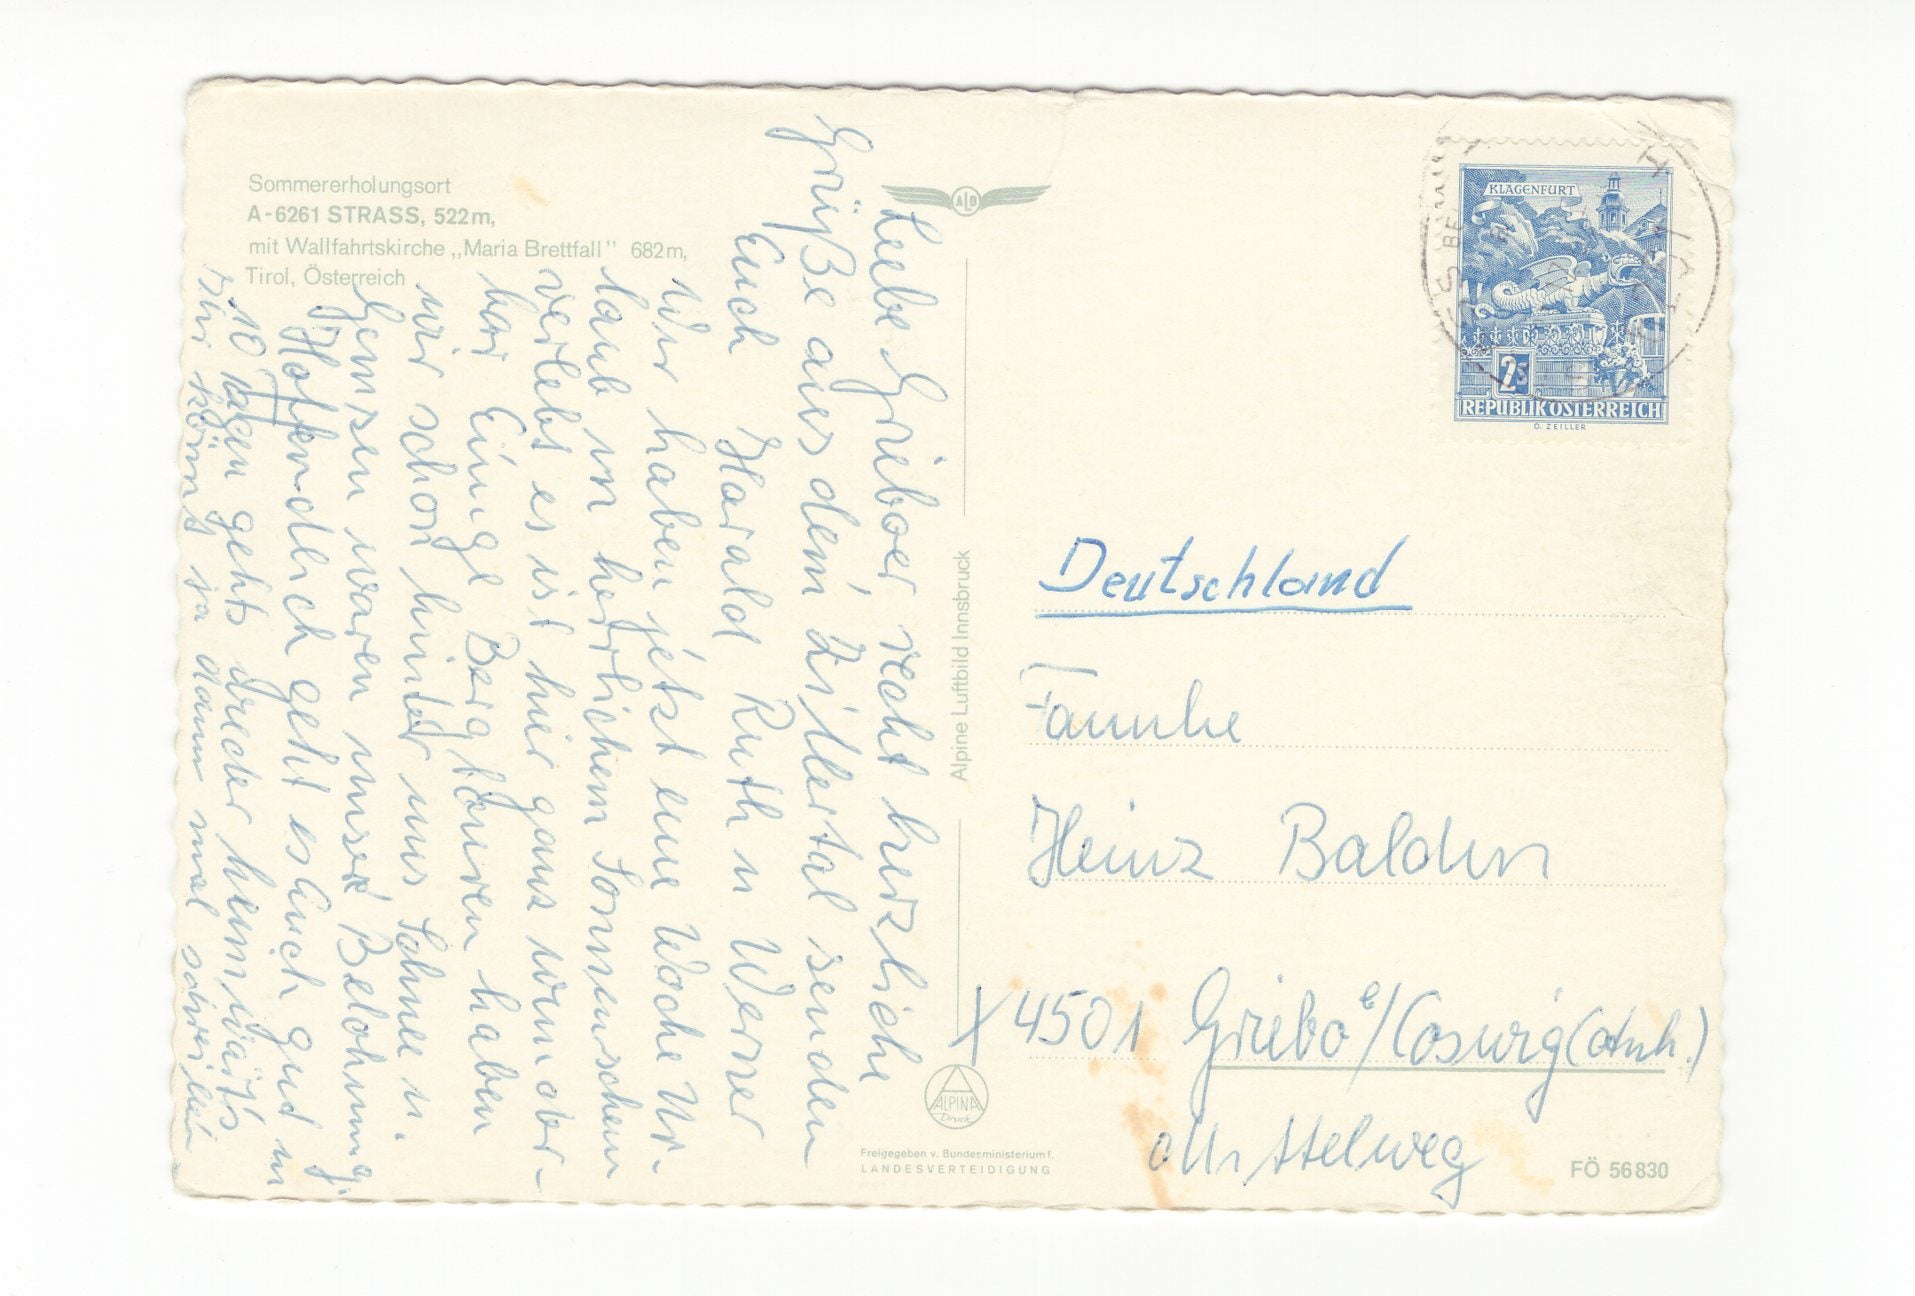 Sommererholungsort
A-6261 STRASS, 522m,
mit Wallfahrtskirche „Maria Brettfall" 682m,
Tirol, Österreich
ALB
Liebe Grieboer recht herzliche
Grüße aus dem Zillertal senden
Euch Harald Ruth u Werner
Wir haben jetzt eine Woche Ur-
laub in herlichem Sonnenschein
verlebt es ist hier ganz wunder-
bar Einige Bergtouren haben
wir schon hinter uns Schnee u.
Gemsen waren unsere Belohnung.
Hoffendlich geht es Euch gut in
10 Tagen gehts wieder heimwärts
Ihr könnt ja dann mal schreiben
Alpine Luftbild Innsbruck
ALPINA
Druck
Freigegeben v. Bundesministerium f.
LANDESVERTEIDIGUNG
KLAGENFURT
2S
REPUBLIK ÖSTERREICH
O. ZEILLER
Deutschland
Familie
Heinz Balduin
X 4501 Griebo e/Coswig (Anh.)
Mittelweg
FÖ 56830